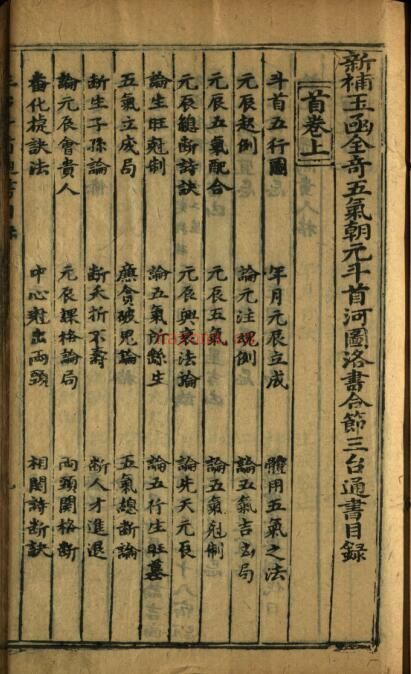 新補玉函全奇五氣朝元斗首河圖洛書合節三台通書目錄
首卷上
斗首五行圖 年月元辰立成 體用五氣之法
元辰起例 論元注現例 論五氣吉凶局
元辰五氣配合 元辰五氣 論五氣剋制
元辰總斷詩訣 元辰興衰法論 論先天元辰
論生旺剋制 論五氣所餘生 論五行生旺墓
五氣立成局 廉貪破鬼論 五氣總斷論
斷生子孫論 斷夭折不壽 斷人才進退
論元辰會貴人 元辰課格論局 両頭関格斷
番化捉訣法 中心對出両頭 相関詩斷訣